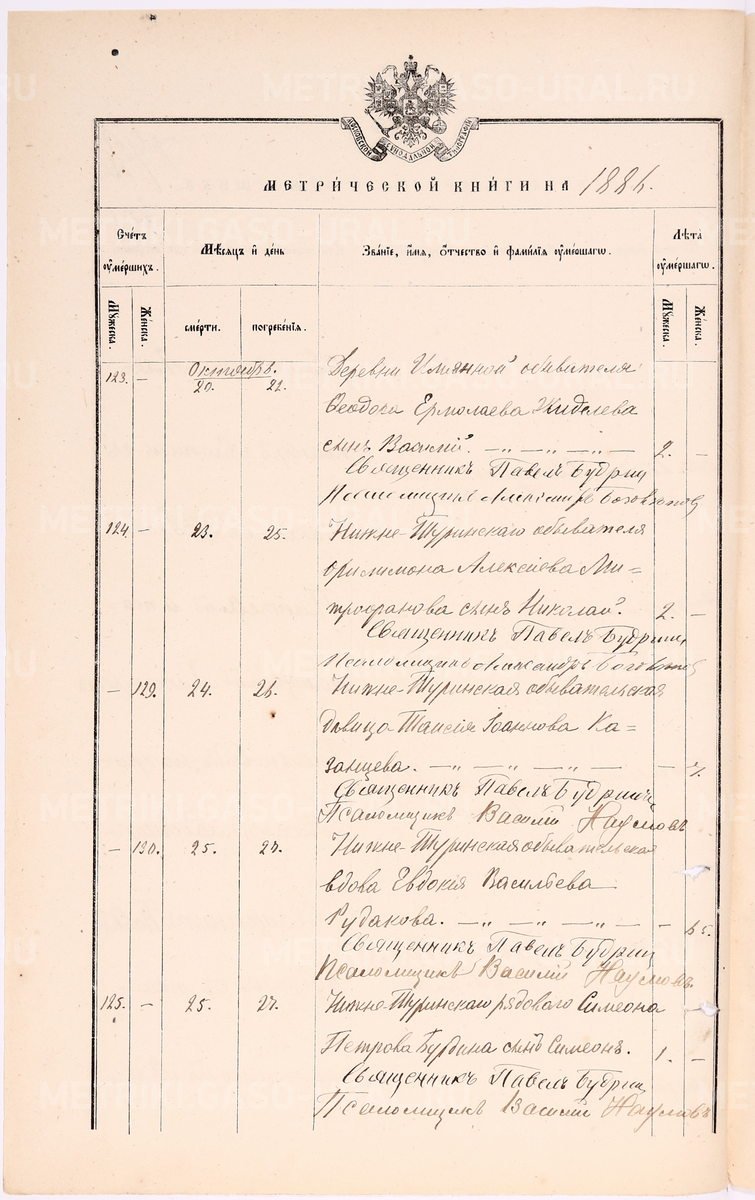 МОСКОВСКОЙ СѴНОДАЛЬНОЙ ТѴПОГРАФІИ
МЕТРИ́ЧЕСКОЙ КНИ́ГИ НА 1886.
Счётъ ᲂу҆ме́ршихъ.
Мѣ́сяцъ и҆ де́нь
Зва́нїе, и҆́мя, ѻ҆́тчество и҆ фами́лїя ᲂу҆ме́ршагѡ.
Лѣ́та ᲂу҆ме́ршагѡ.
Мꙋ́жеска.
Же́нска.
сме́рти.
погребе́нїя.
Мꙋ́жеска.
Же́нска.
Октябрь.
123. — 20. 22. Деревни Имянной обывателя
Ѳеодоса Ермолаева Жиделева
сынъ Василій. —„—„—„— 2. —
Священникъ Павелъ Будрин
Псаломщикъ Александръ Боговъ
124. — 23. 25. Нижне-Туринскаго обывателя
Филимона Алексѣева Ми-
трофанова сынъ Николай. 2. —
Священникъ Павелъ Будринъ
Псаломщикъ Александръ
— 129. 24. 26. Нижне-Туринская обывательская
дѣвица Таисія Іоаннова Ка-
занцева. —„—„—„— —
Священникъ Павелъ Будринъ
Псаломщикъ Василій Наумовъ
— 130. 25. 27. Нижне-Туринская обывательская
вдова Евдокія Васильева
Рудакова. —„—„—„— — 65.
Священникъ Павелъ Будрин
Псаломщикъ Василій Наумовъ
125. — 25. 27. Нижне-Туринскаго рядоваго Симеона
Петрова Бурдина сынъ Симеонъ. 1. —
Священникъ Павелъ Будрин
Псаломщикъ Василій Наумовъ
METRIKI.GASO-URAL.RU